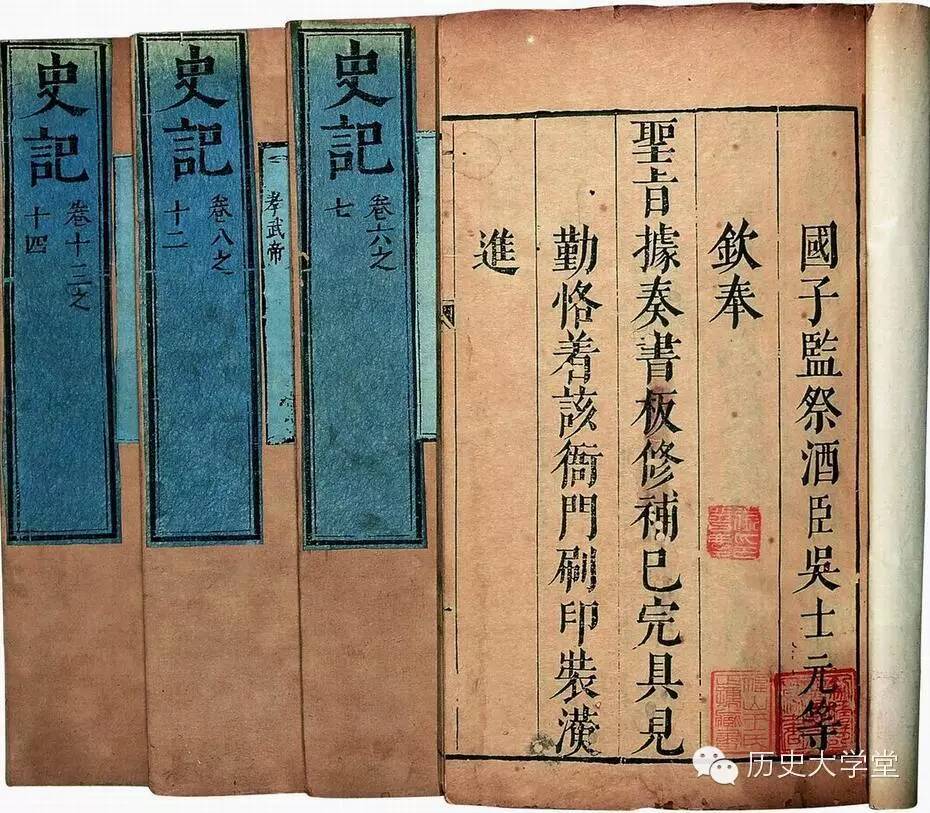 國子監祭酒臣吳士元等
欽奉
聖旨據奏書板修補已完具見
勤恪着該衙門刷印裝潢
進
史記
卷六之
七
孝武帝
史記
卷八之
十二
史記
卷十二之
十四
历史大学堂